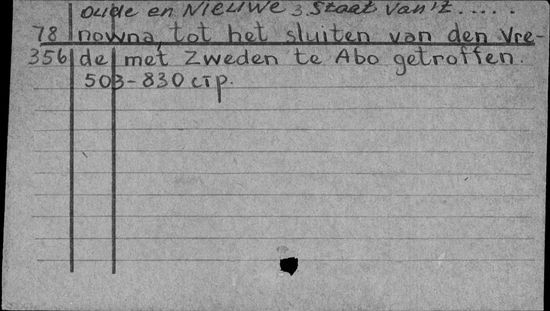 oude en Nieuwe 3. Staat van't.....
78 nowna, tot het sluiten van den Vre-
356 de met Zweden te Abo getroffen.
503-830 стр.